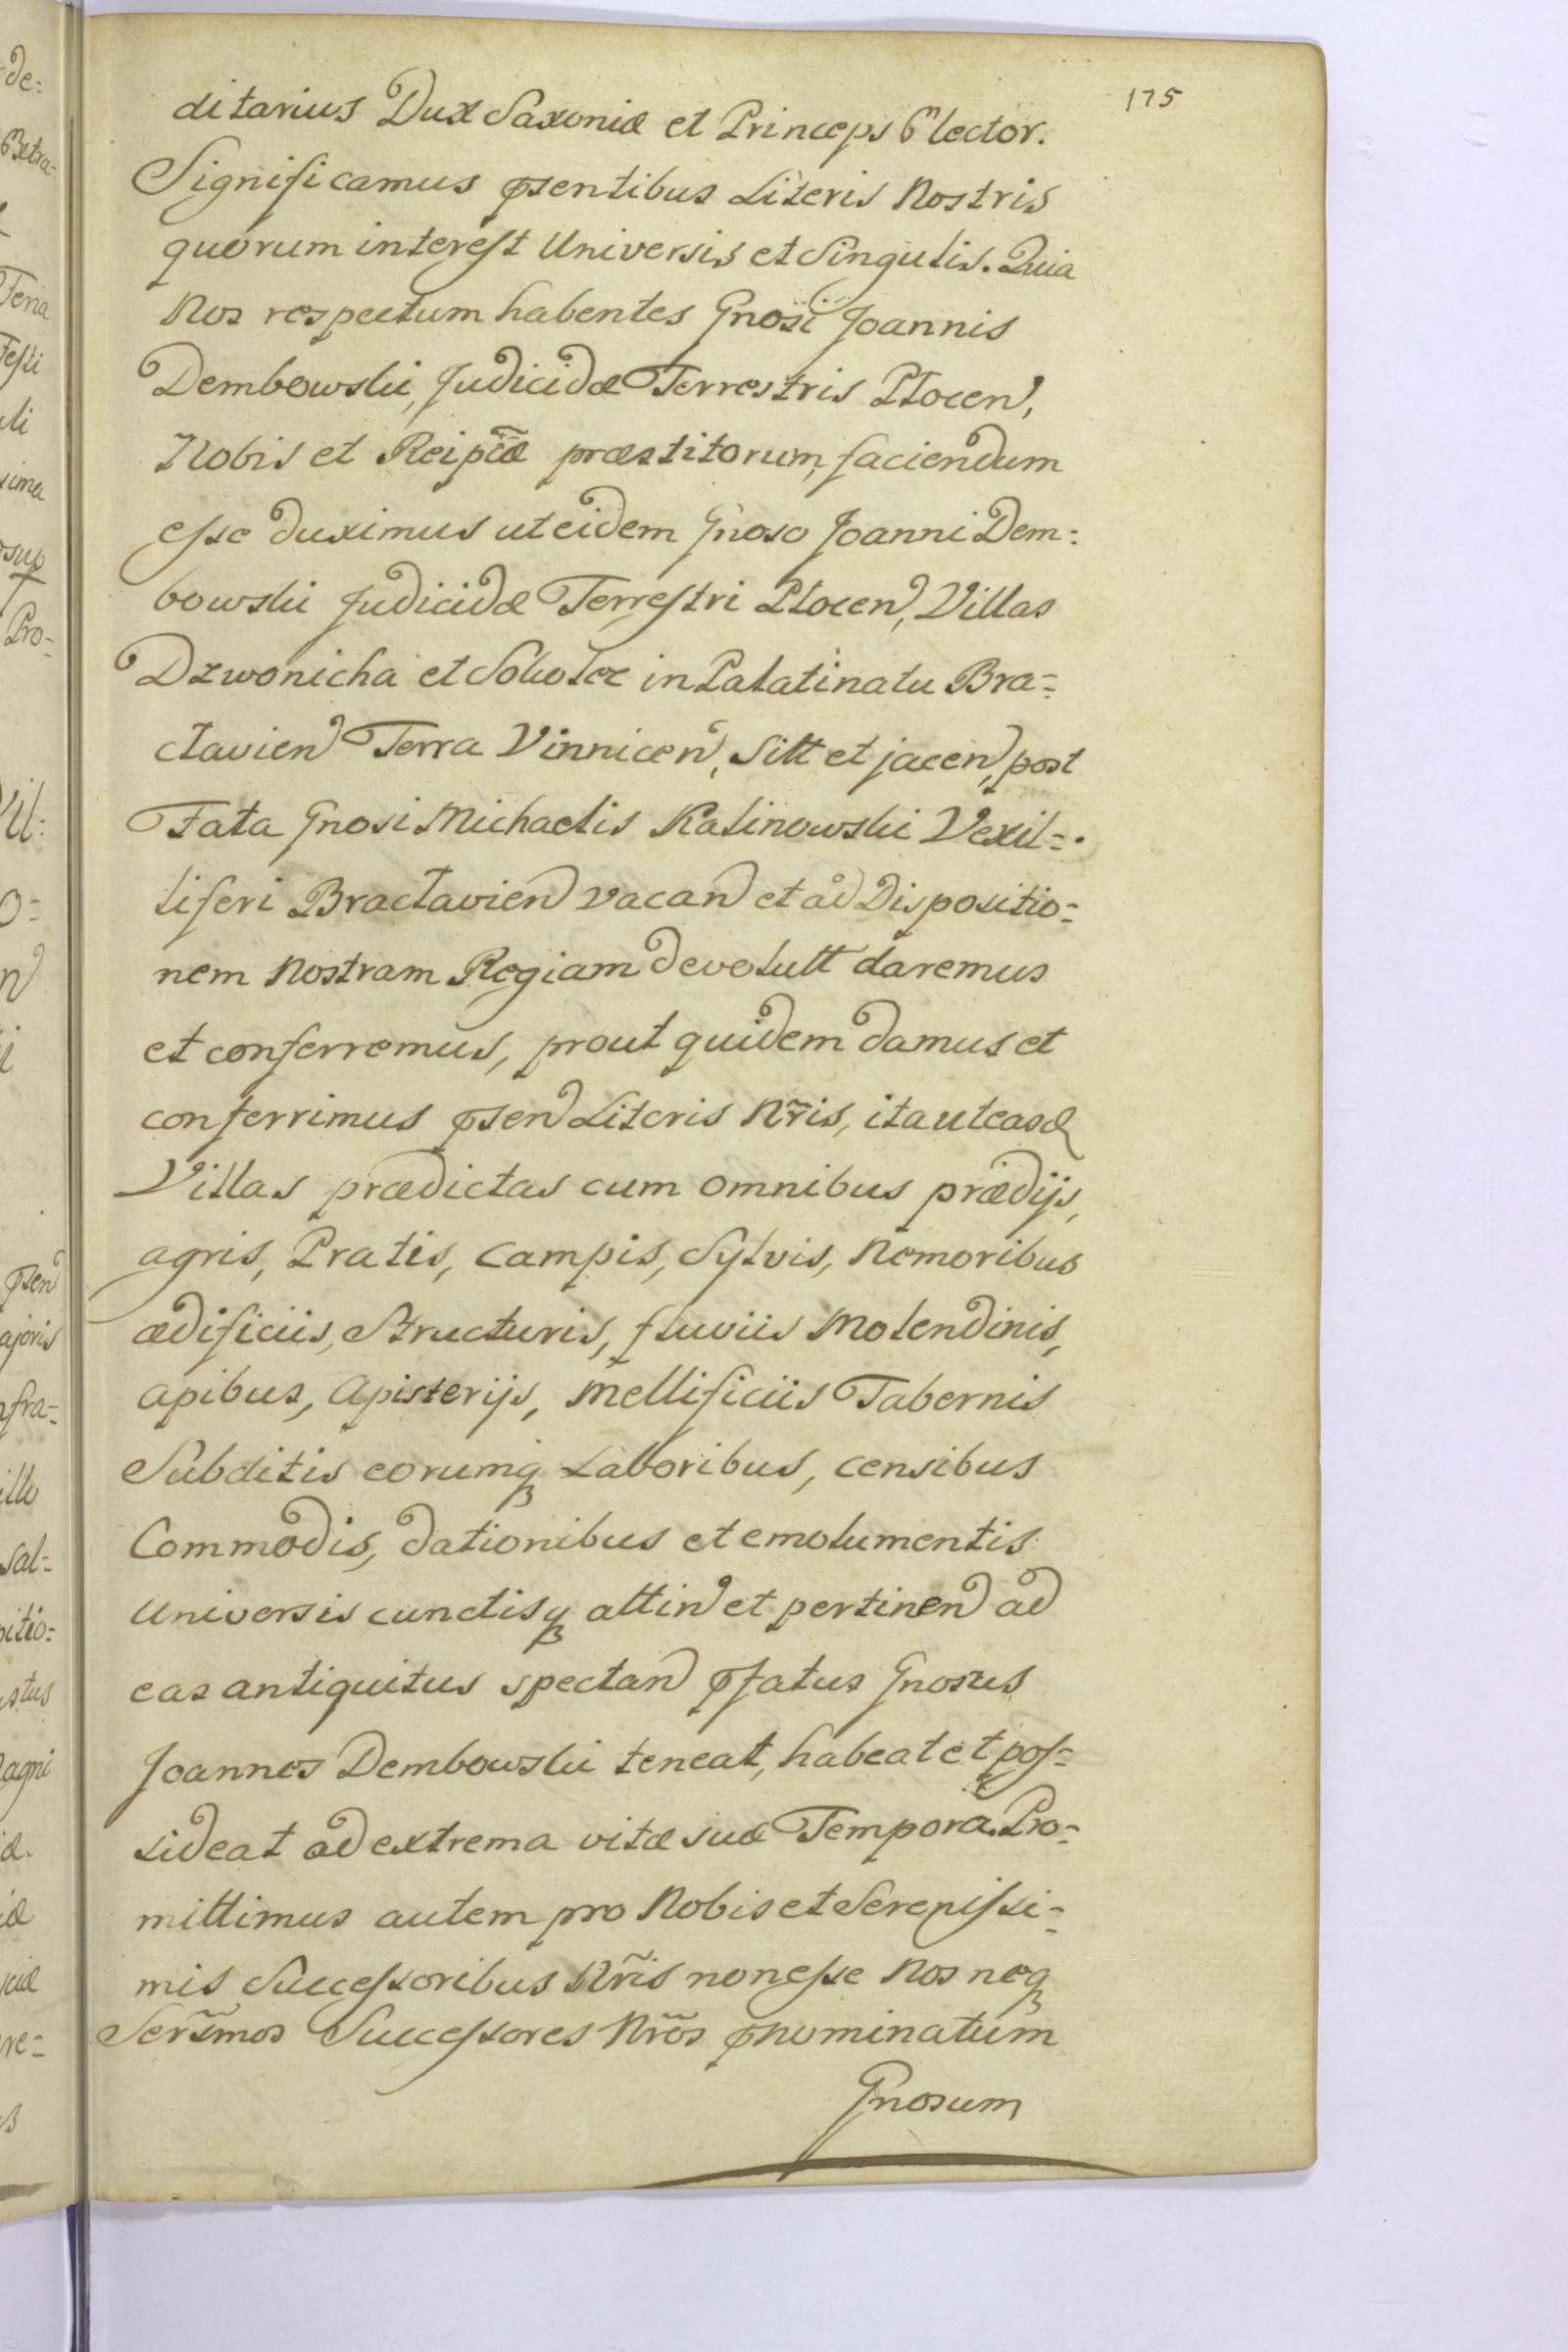 175
ditarius Dux Saxoniæ et Princeps Elector.
Significamus pṡentibus Literis Nostris
quorum interest Universis et Singulis. Quia
Nos respectum habentes Gnosi Joannis
Dembowski, Judicidæ Terrestris Plocen,
Nobis et Reipcæ præstitorum, faciendum
esse duximus ut eidem Gnoso Joanni Dem=
bowski Judicidæ Terrestri Plocen, Villas
Dzwonicha et in Palatinatu Bra=
clavien Terra Vinnicen, Sitt et jacen, post
Fata Gnosi Michaelis Kalinowski Vexil=
liferi Braclavien vacan et ad Dispositio=
nem Nostram Regiam devolutt daremus
et conferremus, prout quidem damus et
conferrimus psen Literis Nr̃is, ita ut easd
Villas prædictas cum omnibus prædijs,
agris, Pratis, Campis, Sylvis, Nemoribus
ædificiis, Structuris, fluviis Molendinis,
apibus, Apisterijs, Mellificiis Tabernis
Subditis eorumq Laboribus, censibus
Commodis, dationibus et emolumentis
Universis cunctisq attin et pertinen ad
eas antiquitus spectan pfatus Gnosus
Joannes Dembowski teneat, habeat et pos=
sideat ad extrema vitæ suæ Tempora. Pro=
mittimus autem pro Nobis et Serenissi=
mis Successoribus Nr̃is non esse Nos neq
Serr̃mos Successores Nr̃os pnominatum
Gnosum